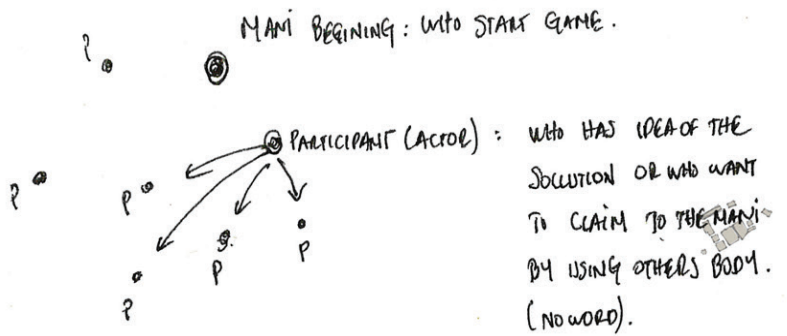 MANI BEGINING: WHO START GAME.
P
PARTICIPANT (ACTOR): WHO HAS IDEA OF THE
SOLUTION OR WHO WANT
P
P
TO CLAIM TO THE MANI
P
P
BY USING OTHERS BODY.
P
(NO WORD).